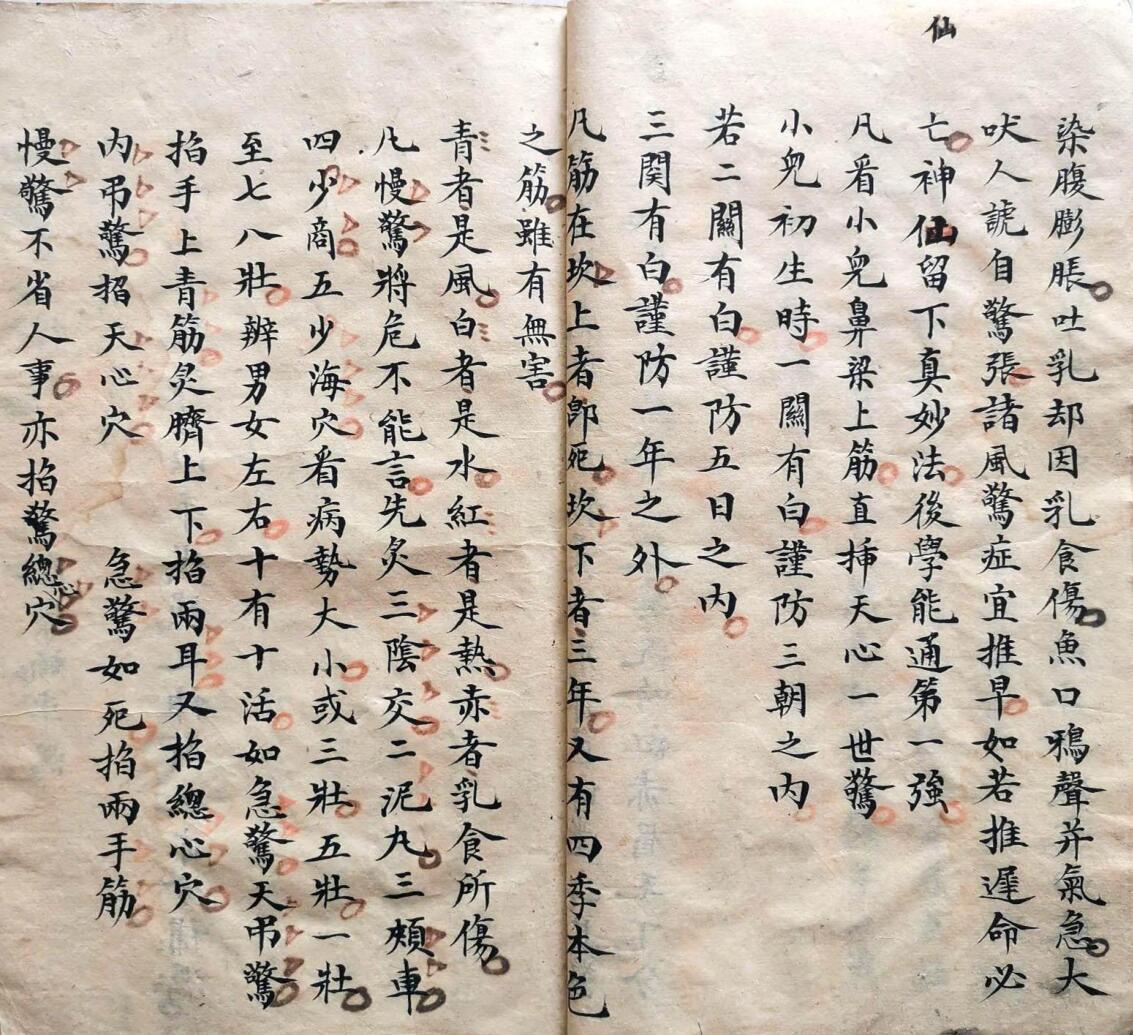 仙
染腹膨脹吐乳却因乳食傷魚口鴉聲并氣急大
吠人諕自驚張諸風驚症宜推早如若推遲命必
亡神仙留下真妙法後學能通第一強
凡看小兒鼻梁上筋直挿天心一世驚
小兒初生時一關有白謹防三朝之內
若二關有白謹防五日之內
三関有白謹防一年之外
凡筋在坎上者即死坎下者三年又有四季本色
之筋雖有無害
青者是風白者是水紅者是熱赤者乳食所傷
凡慢驚將危不能言先灸三陰交二泥丸三頰車
四少商五少海穴看病勢大小或三壯五壯一壯
至七八壯辨男女左右十有十活如急驚天吊驚
掐手上青筋灸臍上下掐兩耳又掐總心穴
內吊驚招天心穴 急驚如死掐兩手筋
慢驚不省人事亦掐驚總心穴